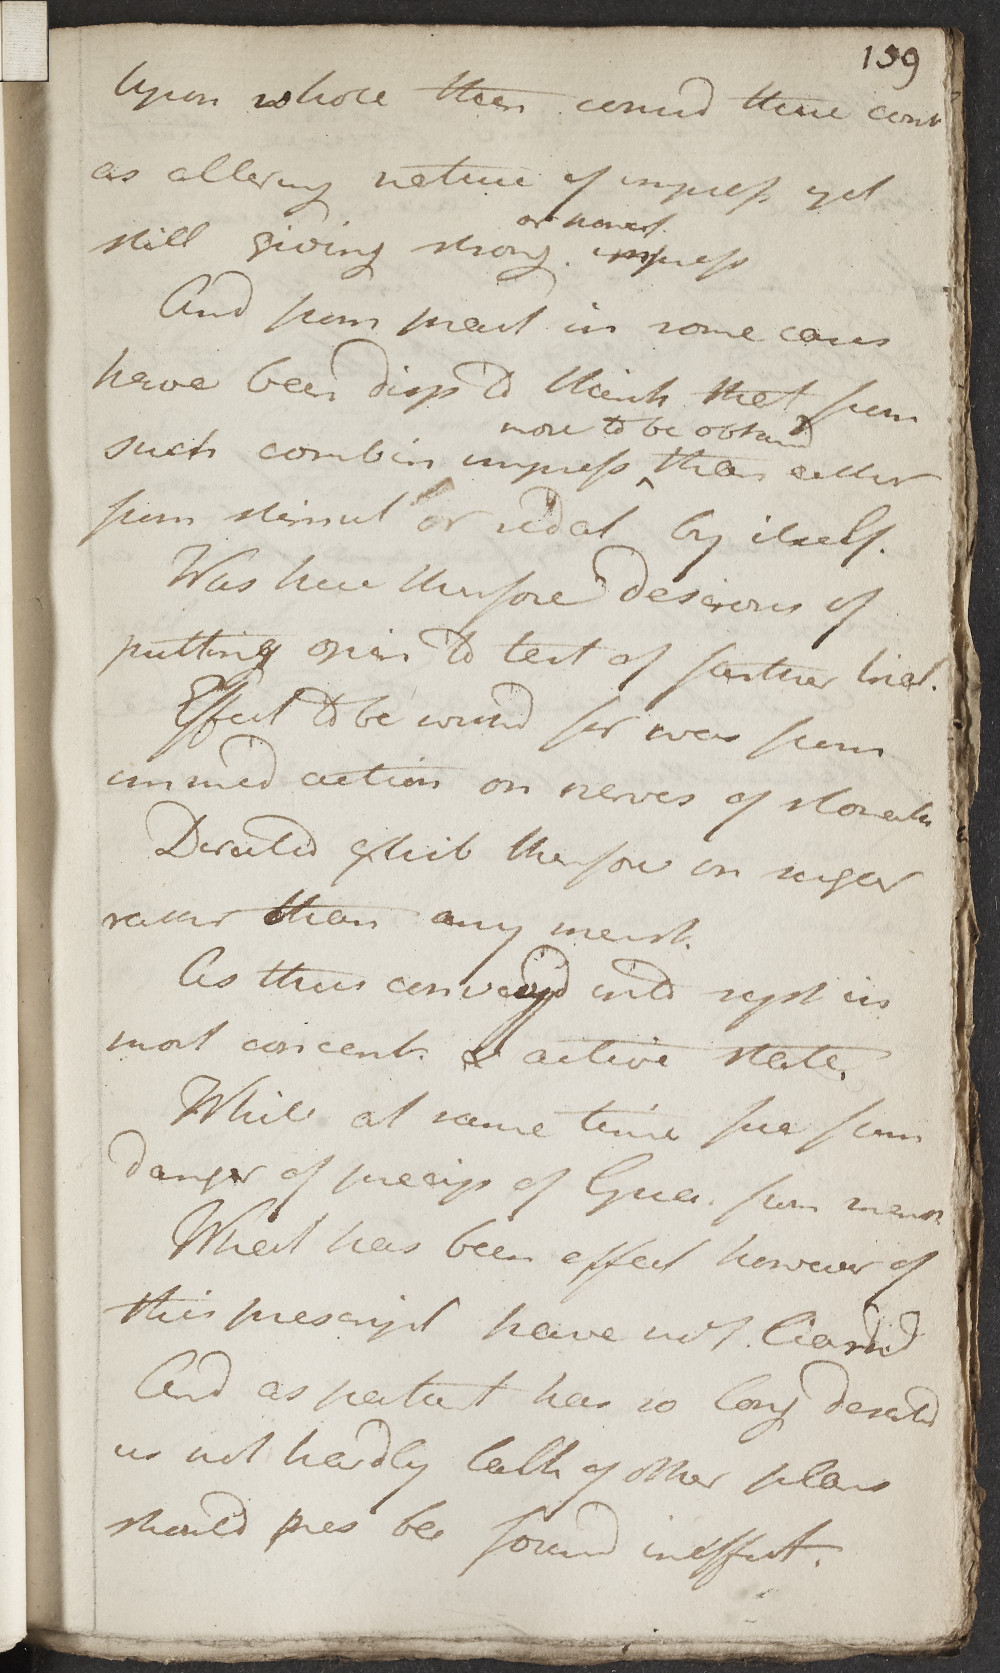 159
Upon whole then consid these comb
as altering nature of impress. yet
or harsh
still giving strong. impress
And from pract in some cases
have been disp'd to think that from
more to be obtaind
such combin impress ^ than either
from stimul or sedat by itself.
Was here therfore desirous of
putting opin to test of farther trial.
Effect to be wishd for was from
immed action on nerves of stomach
Directed exhib therfore in sugar
rather than any menst.
As thus conveyd into syst in
most concent. & active state.
While at same time free from
danger of precip of Guai. from menst
What has been effect however of
this prescript have not learnd
And as patient has so long deserted
us not hardly talk of other plans
should pres be found ineffect.